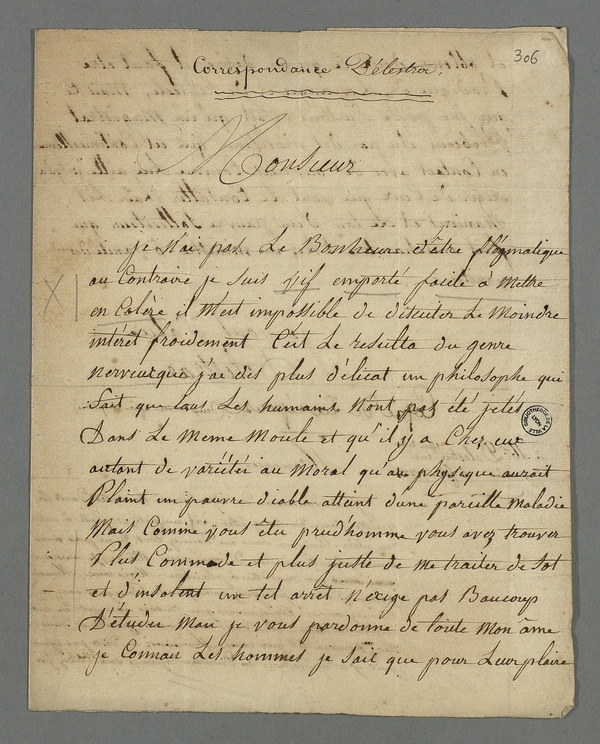 306
Correspondance Délestra.
Monsieur
je n'ai pas Le Bonheur d'être flégmatique
au Contraire je suis vif emporté facile à mettre
en Colère il m'est impossible de discuter Le moindre
intérêt froidement C'est Le resulta du genre
nerveux que j'ai des plus délicat un philosophe qui
sait que tous Les humains n'ont pas été jetés
Dans Le meme moule et qu'il y a Chez eux
autant de variétés au moral qu'au physique aurait
Plaint un pauvre diable atteint d'une pareille maladie
Mais Comme vous êtes prud'homme vous avez trouver
Plus Commode et plus juste de me traiter de sot
et d'insolent un tel arrêt n'exige pas Baucoup
D'études mais je vous pardonne de toute mon âme
je Connais Les hommes je sait que pour Leur plaire
BIBLIOTHEQUE DE LA VILLE